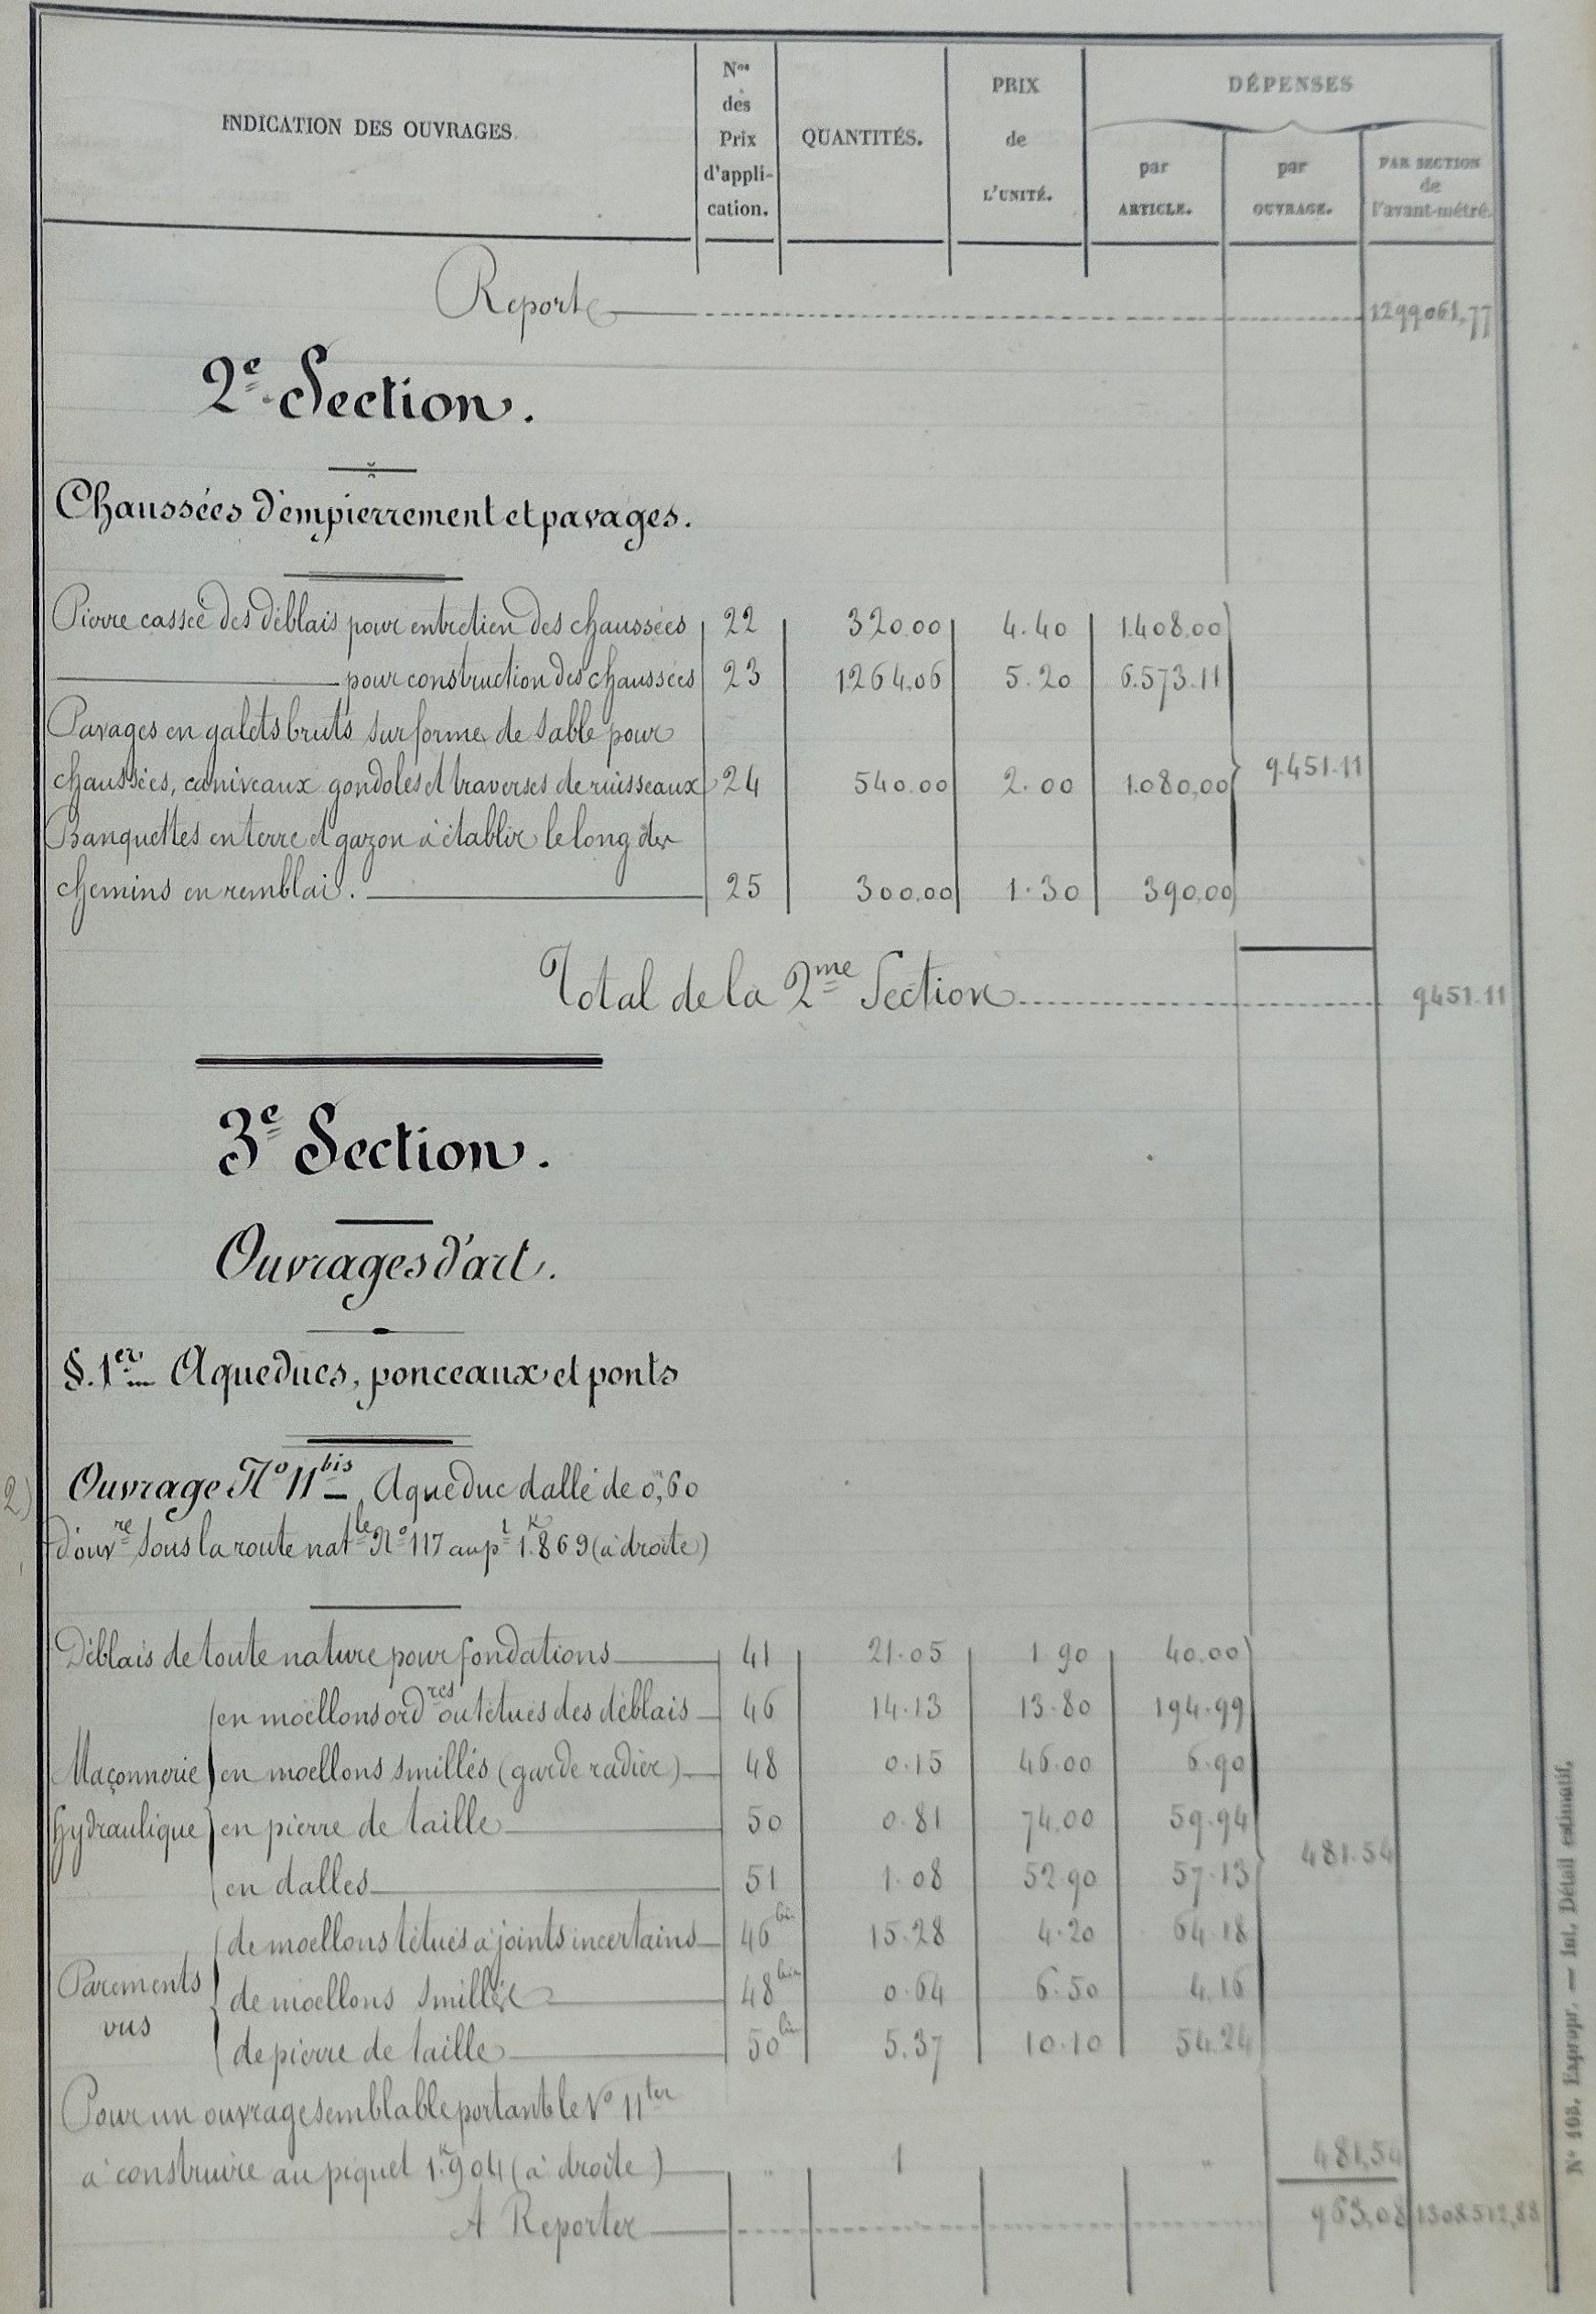 INDICATION DES OUVRAGES.
Nos des Prix d'appli-cation.
QUANTITÉS.
PRIX de L'UNITÉ.
DÉPENSES
par ARTICLE.
par OUVRAGE.
PAR SECTION de l'avant-métré.
Report 1299061,77
2e Section.
Chaussées d'empierrement et pavages.
Pierre cassée des déblais pour entretien des chaussées 22 320.00 4.40 1.408.00
pour construction des chaussées 23 1264.06 5.20 6.573.11
Pavages en galets bruts sur forme de sable pour
chaussées, caniveaux gondoles et traverses de ruisseaux 24 540.00 2.00 1.080,00 9.451.11
Banquettes en terre et gazon à établir le long des
chemins en remblai. 25 300.00 1.30 390,00
Total de la 2me Section 9451.11
3e Section.
Ouvrages d'art.
§.1er Aqueducs, ponceaux et ponts
2)
Ouvrage No 11 bis Aqueduc dallé de 0m,60
d'ouvre sous la route natle No 117 au pt 1k.869 (à droite)
Déblais de toute nature pour fondations 41 21.05 1.90 40.00
Maçonnerie hydraulique
en moëllons ordres ou têtués des déblais 46 14.13 13.80 194.99
en moëllons smillés (garde radier) 48 0.15 46.00 6.90
en pierre de taille 50 0.81 74.00 59.94
en dalles 51 1.08 52.90 57.13
481.54
Parements vus
de moëllons têtués à joints incertains 46 bis 15.28 4.20 64.18
de moëllons smillés 48 bis 0.64 6.50 4.16
de pierre de taille 50 bis 5.37 10.10 54.24
Pour un ouvrage semblable portant le No 11 ter
à construire au piquet 1k.904 (à droite) " 1 " 481,54
A Reporter 963,08 1308512,88
No 103. Expropr. — Int. Détail estimatif.